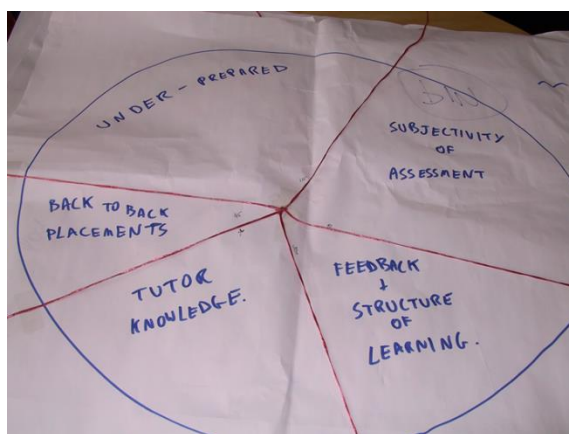 UNDER - PREPARED
SUBJECTIVITY
OF
ASSESSMENT
BACK TO BACK
PLACEMENTS
TUTOR
KNOWLEDGE.
FEEDBACK
+
STRUCTURE
OF
LEARNING.